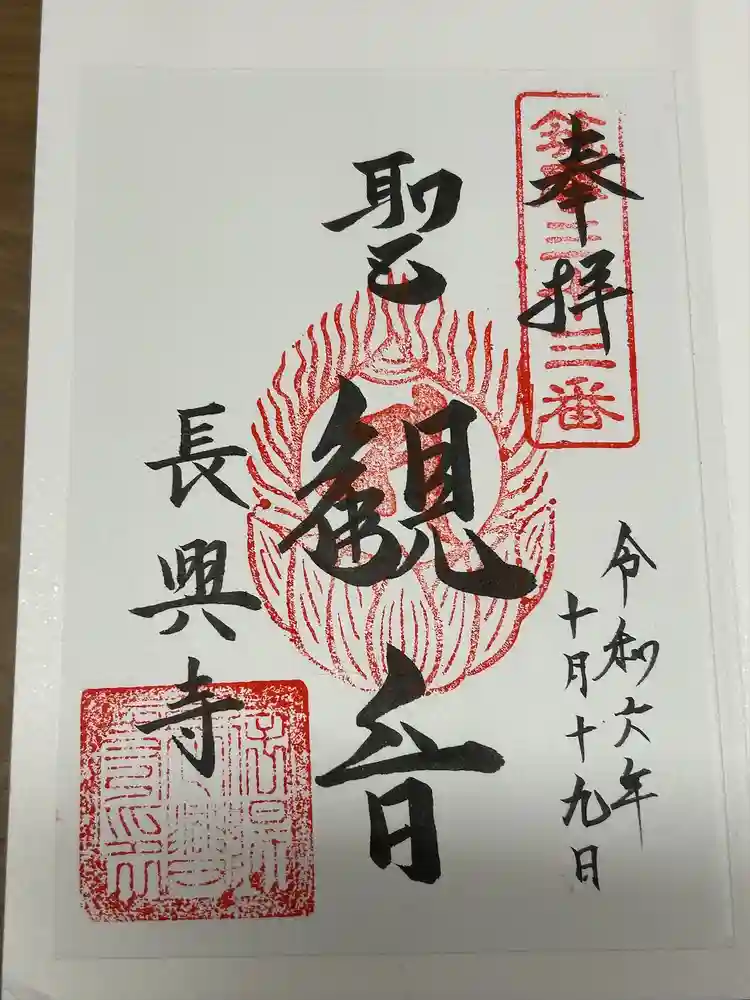 奉拝
三十三番
令和六年
十月十九日
聖観音
長興寺